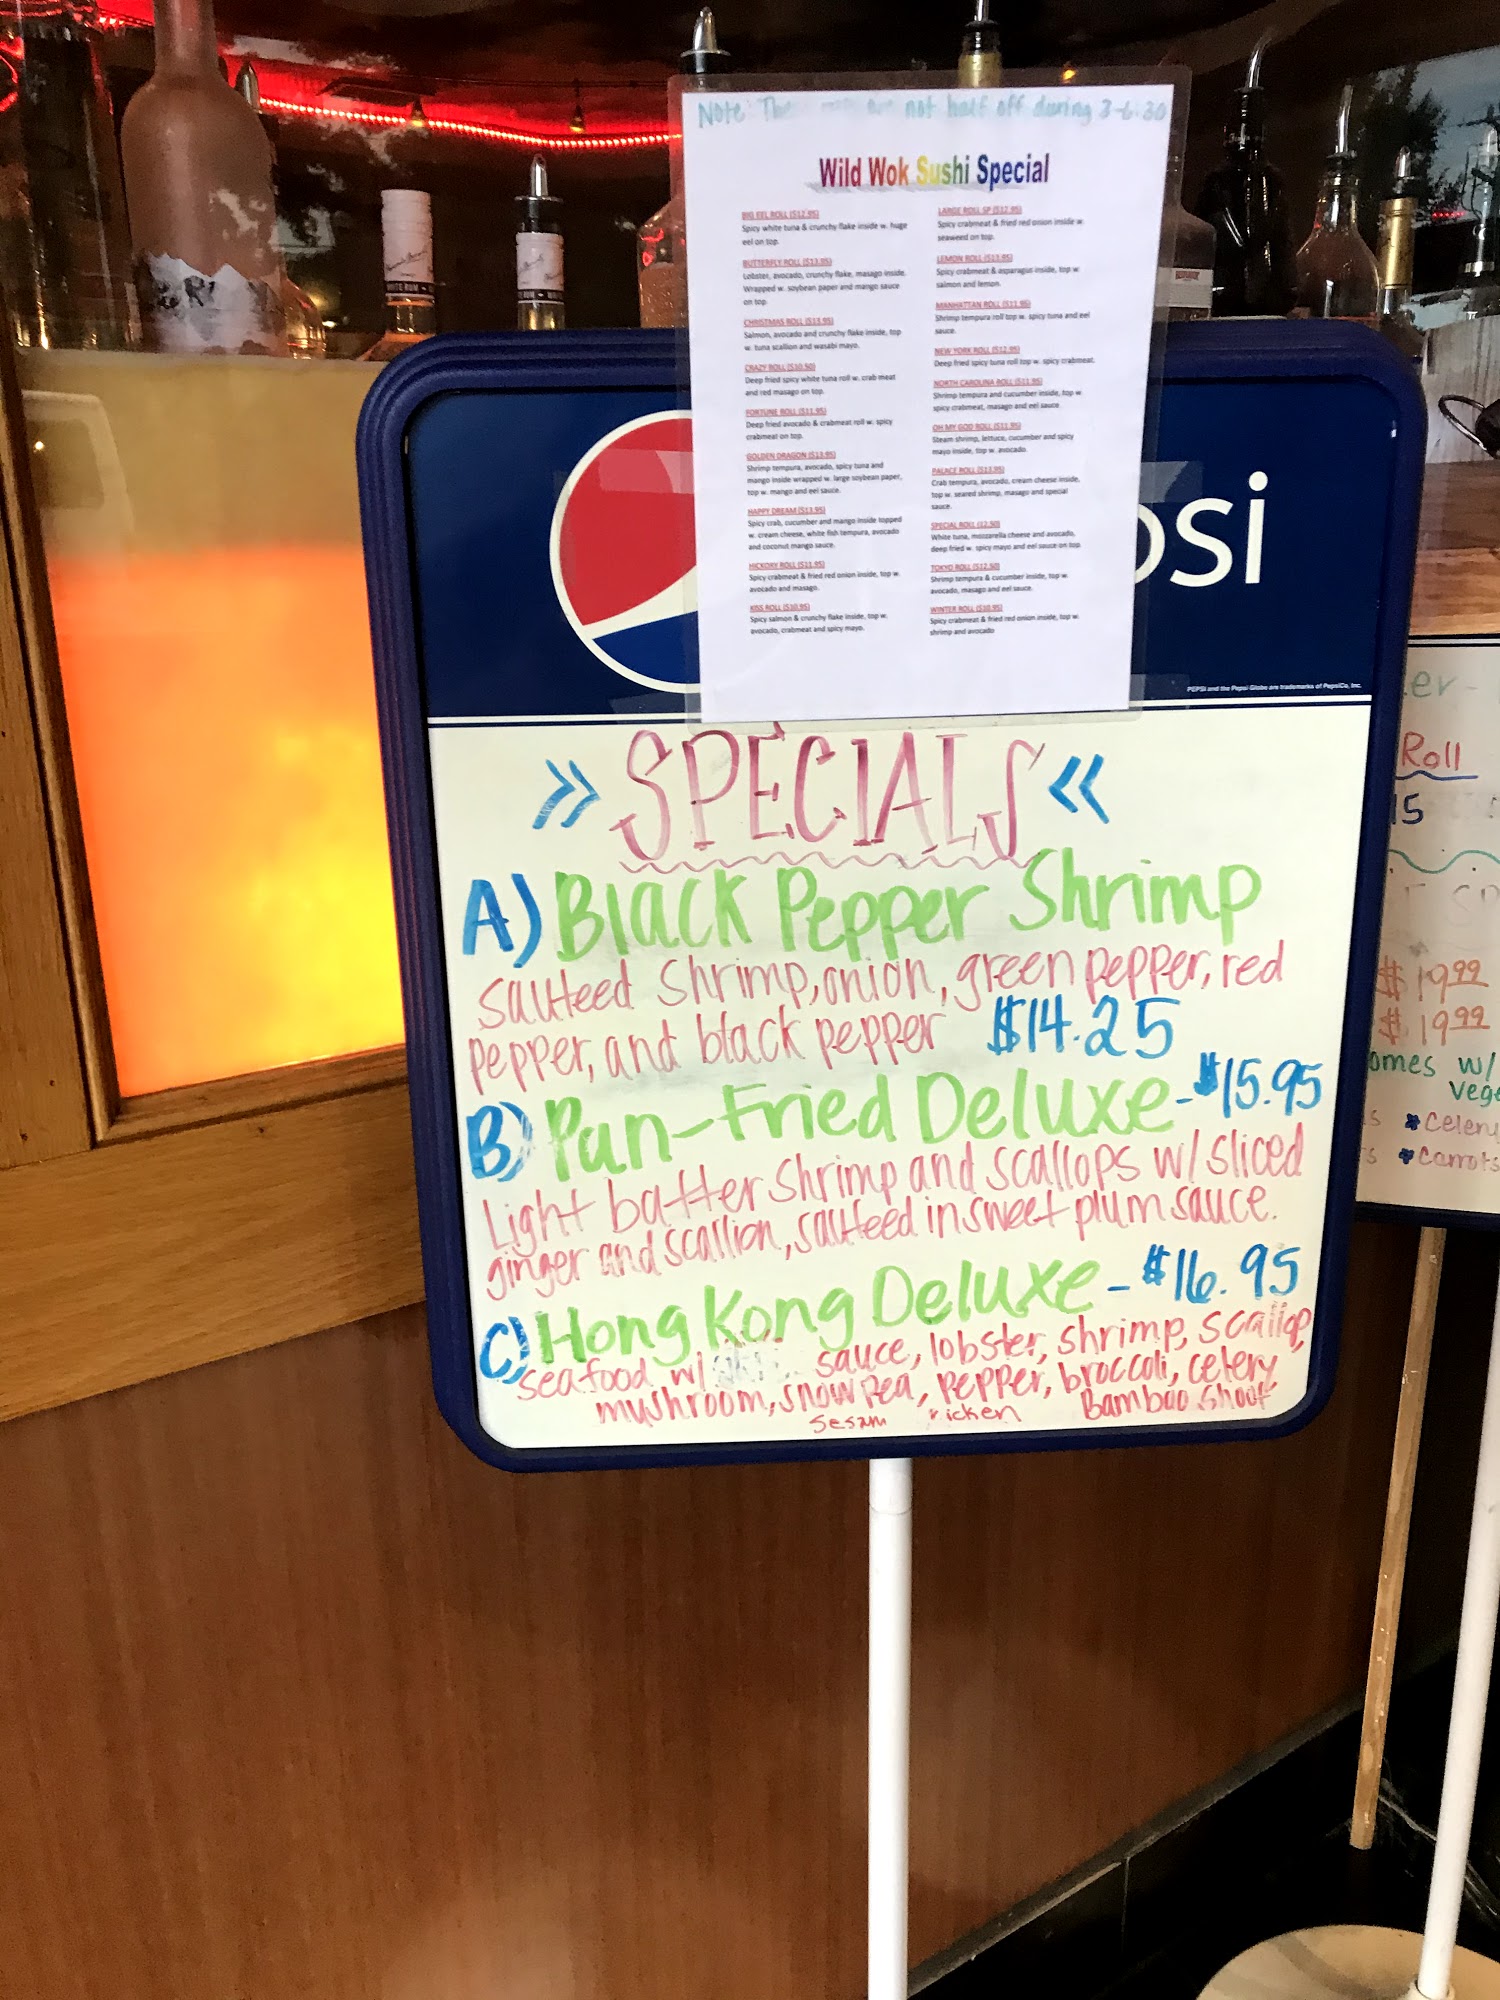 Note The not half off during 3-6:30
Wild Wok Sushi Special
BIG EEL ROLL ($12.95)
Spicy white tuna & crunchy flake inside w. huge
eel on top.
BUTTERFLY ROLL ($13.95)
Lobster, avocado, crunchy flake, masago inside.
Wrapped w. soybean paper and mango sauce
on top.
CHRISTMAS ROLL ($13.95)
Salmon, avocado and crunchy flake inside, top
w. tuna scallion and wasabi mayo.
CRAZY ROLL ($10.50)
Deep fried spicy white tuna roll w. crab meat
and red masago on top.
FORTUNE ROLL ($11.95)
Deep fried avocado & crabmeat roll w. spicy
crabmeat on top.
GOLDEN DRAGON ($13.95)
Shrimp tempura, avocado, spicy tuna and
mango inside wrapped w. large soybean paper,
top w. mango and eel sauce.
HAPPY DREAM ($13.95)
Spicy crab, cucumber and mango inside topped
w. cream cheese, white fish tempura, avocado
and coconut mango sauce.
HICKORY ROLL ($11.95)
Spicy crabmeat & fried red onion inside, top w.
avocado and masago.
KISS ROLL ($10.95)
Spicy salmon & crunchy flake inside, top w.
avocado, crabmeat and spicy mayo.
LARGE ROLL SP ($12.95)
Spicy crabmeat & fried red onion inside w.
seaweed on top.
LEMON ROLL ($13.95)
Spicy crabmeat & asparagus inside, top w.
salmon and lemon.
MANHATTAN ROLL ($11.95)
Shrimp tempura roll top w. spicy tuna and eel
sauce.
NEW YORK ROLL ($12.95)
Deep fried spicy tuna roll top w. spicy crabmeat.
NORTH CAROLINA ROLL ($11.95)
Shrimp tempura and cucumber inside, top w.
spicy crabmeat, masago and eel sauce
OH MY GOD ROLL ($11.95)
Steam shrimp, lettuce, cucumber and spicy
mayo inside, top w. avocado.
PALACE ROLL ($13.95)
Crab tempura, avocado, cream cheese inside,
top w. seared shrimp, masago and special
sauce.
SPECIAL ROLL (12.50)
White tuna, mozzarella cheese and avocado,
deep fried w. spicy mayo and eel sauce on top.
TOKYO ROLL ($12.50)
Shrimp tempura & cucumber inside, top w.
avocado, masago and eel sauce.
WINTER ROLL ($10.95)
Spicy crabmeat & fried red onion inside, top w.
shrimp and avocado
psi
PEPSI and the Pepsi Globe are trademarks of PepsiCo, Inc.
>> SPECIALS <<
A) Black Pepper Shrimp
Sauteed Shrimp, onion, green pepper, red
pepper, and black pepper $14.25
B) Pan-Fried Deluxe - $15.95
Light batter shrimp and scallops w/ sliced
ginger and scallion, sauteed in sweet plum sauce.
C) Hong Kong Deluxe - $16.95
seafood w/ sauce, lobster, shrimp, scallop,
mushroom, snow pea, pepper, broccoli, celery,
Bamboo Shoot
Sesam
Roll
15
$19.99
$19.99
omes w/
Vege
Celery
Carrots
WHITE RUM